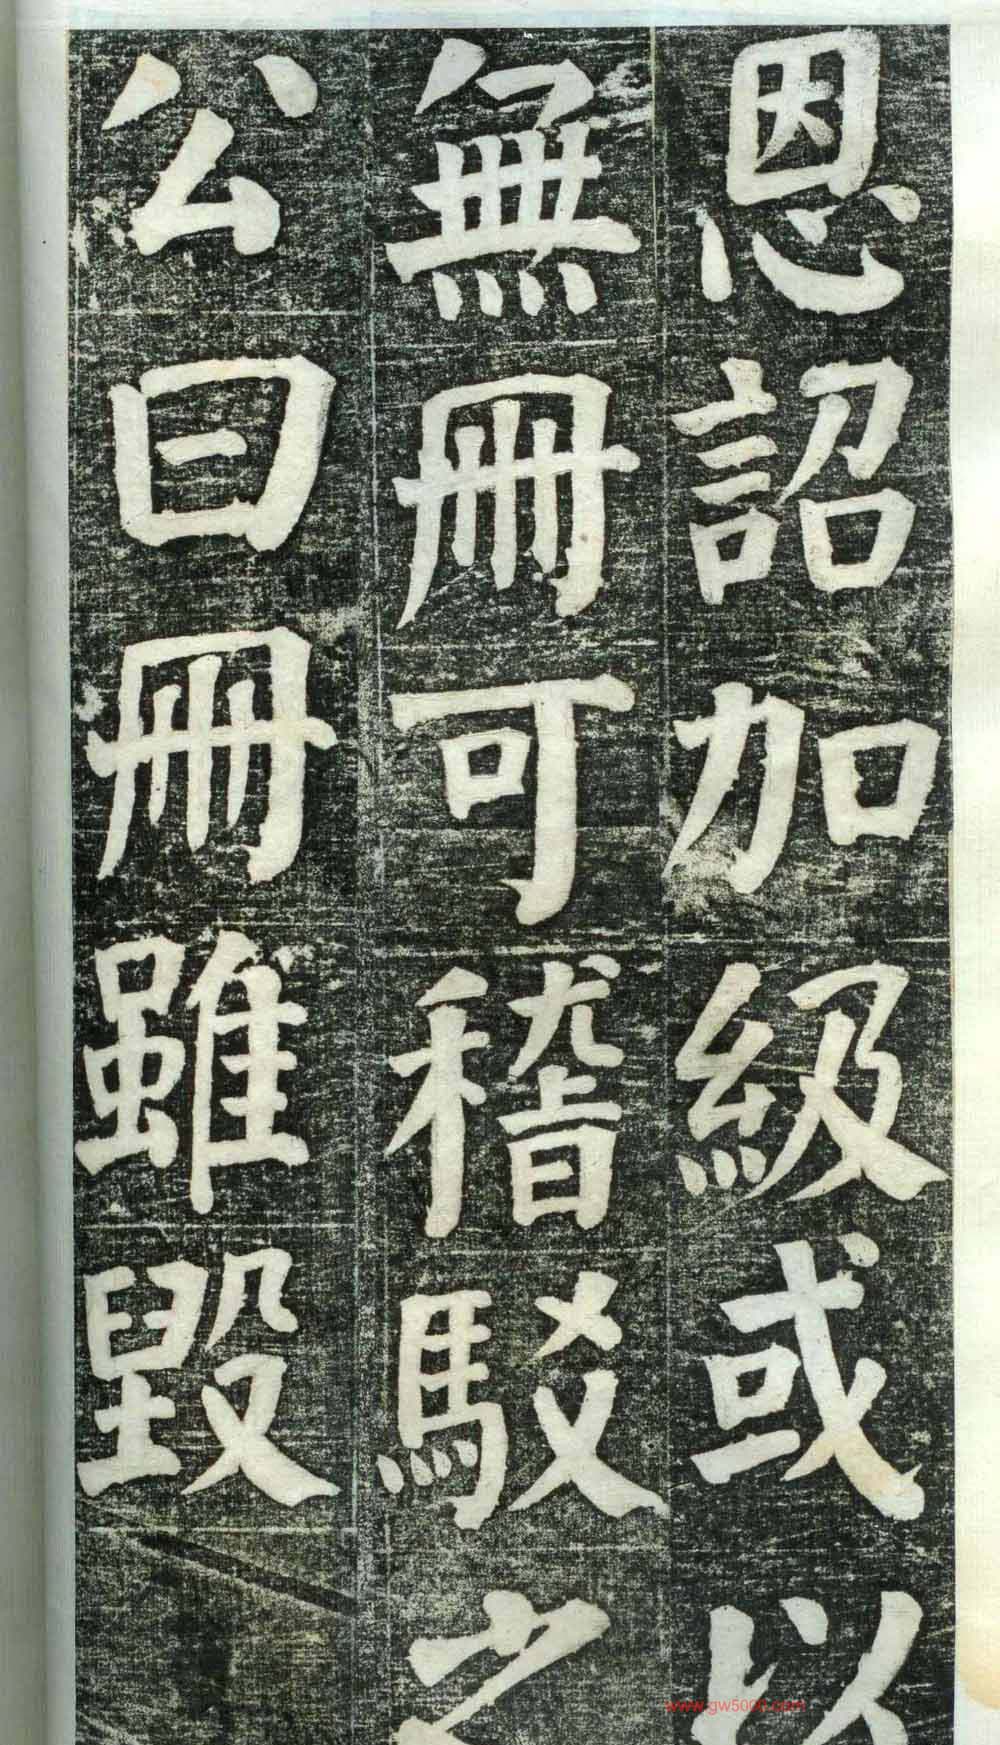 恩詔加級或以
無冊可稽駁之
公曰冊雖毀
www.gw5000.com